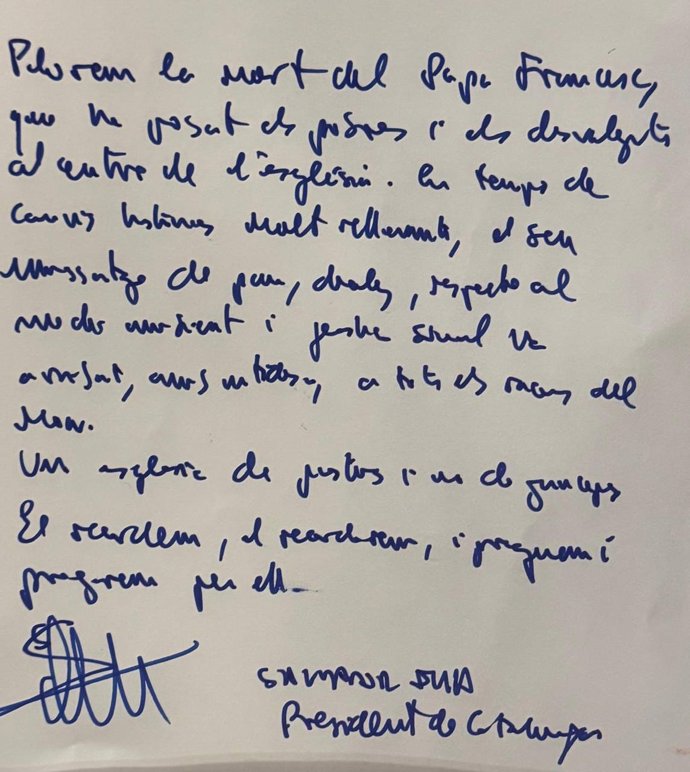 Plorem la mort del Papa Francesc,
que ha posat els pobres i els desvalguts
al centre de l'església. En temps de
canvis històrics molt rellevants, el seu
missatge de pau, diàleg, respecte al
medi ambient i justícia social va
arribat, a tots els racons del
món.
Una església de pastors i no de
El recordem, el recordarem, i preguem i
pregarem per ell.
SALVADOR ILLA
President de Catalunya